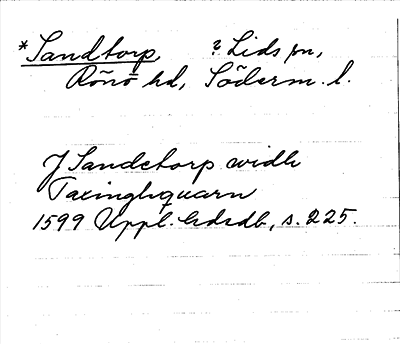 *Sandtorp, ? Lids sn,
Rönö hd, Söderm. l.
J Sandetorp widh
Taxinghequarn
1599 Uppl. hdrdb, s. 225.